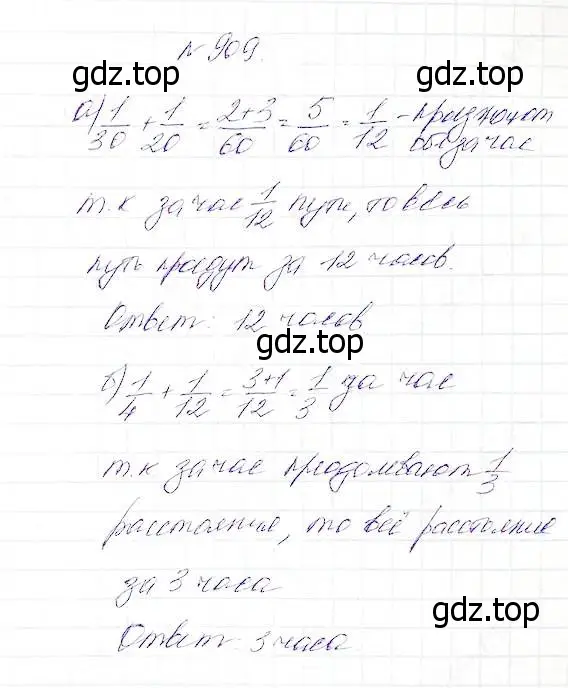 № 909.
gdz.top gdz.top
а) 1/30 + 1/20 = 2+3/60 = 5/60 = 1/12 -
обе за час
т.к за час 1/12 пути, то весь
путь пройдут за 12 часов.
Ответ: 12 часов
gdz.top
б) 1/4 + 1/12 = 3+1/12 = 1/3 за час
т.к за час преодолевают 1/3
расстояния, то всё расстояние
за 3 часа
gdz.top gdz.top
Ответ: 3 часа